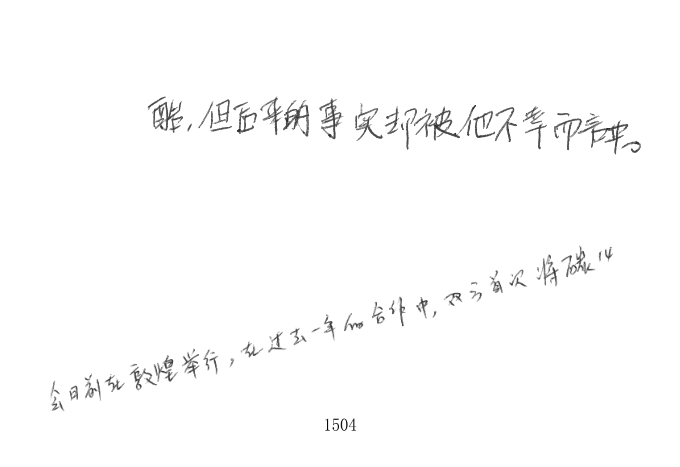 酷,但后来的事实却被他不幸而言中。
会日前在敦煌举行,在过去一年的合作中,双方首次将碳14
1504